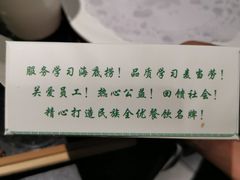 服务学习海底捞！品质学习麦当劳！
关爱员工！热心公益！回馈社会！
精心打造民族全优餐饮名牌！